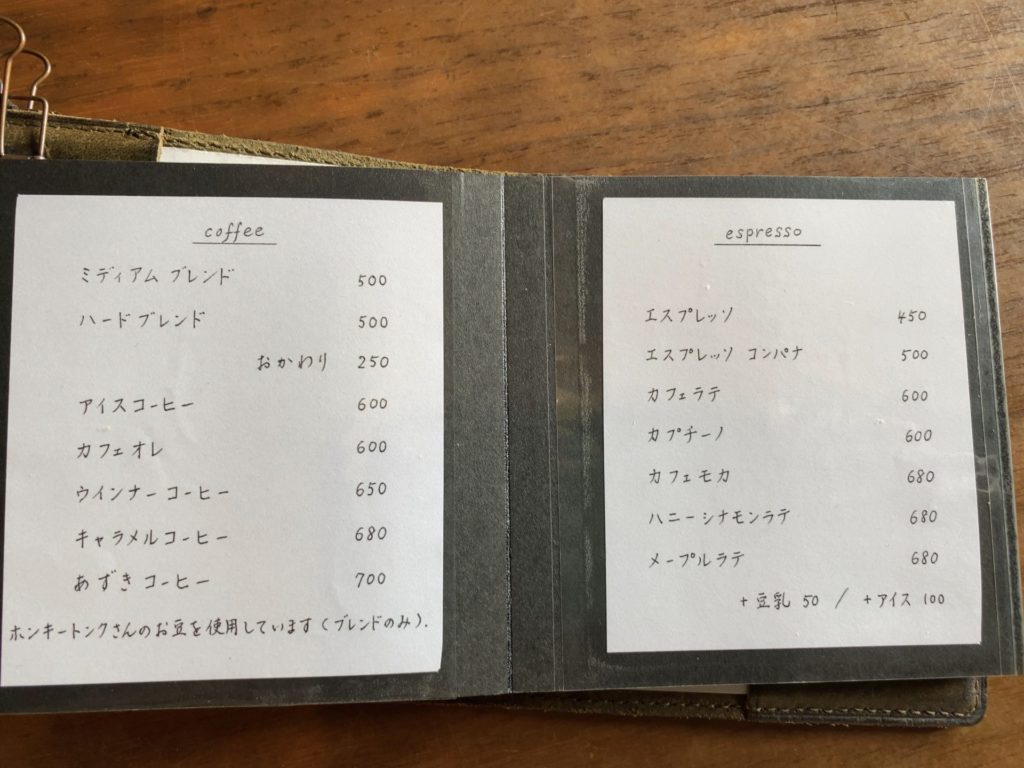 coffee
ミディアム ブレンド 500
ハード ブレンド 500
おかわり 250
アイスコーヒー 600
カフェオレ 600
ウインナーコーヒー 650
キャラメルコーヒー 680
あずきコーヒー 700
ホンキートンクさんのお豆を使用しています(ブレンドのみ).
espresso
エスプレッソ 450
エスプレッソ コンパナ 500
カフェラテ 600
カプチーノ 600
カフェモカ 680
ハニーシナモンラテ 680
メープルラテ 680
+豆乳 50 / +アイス 100